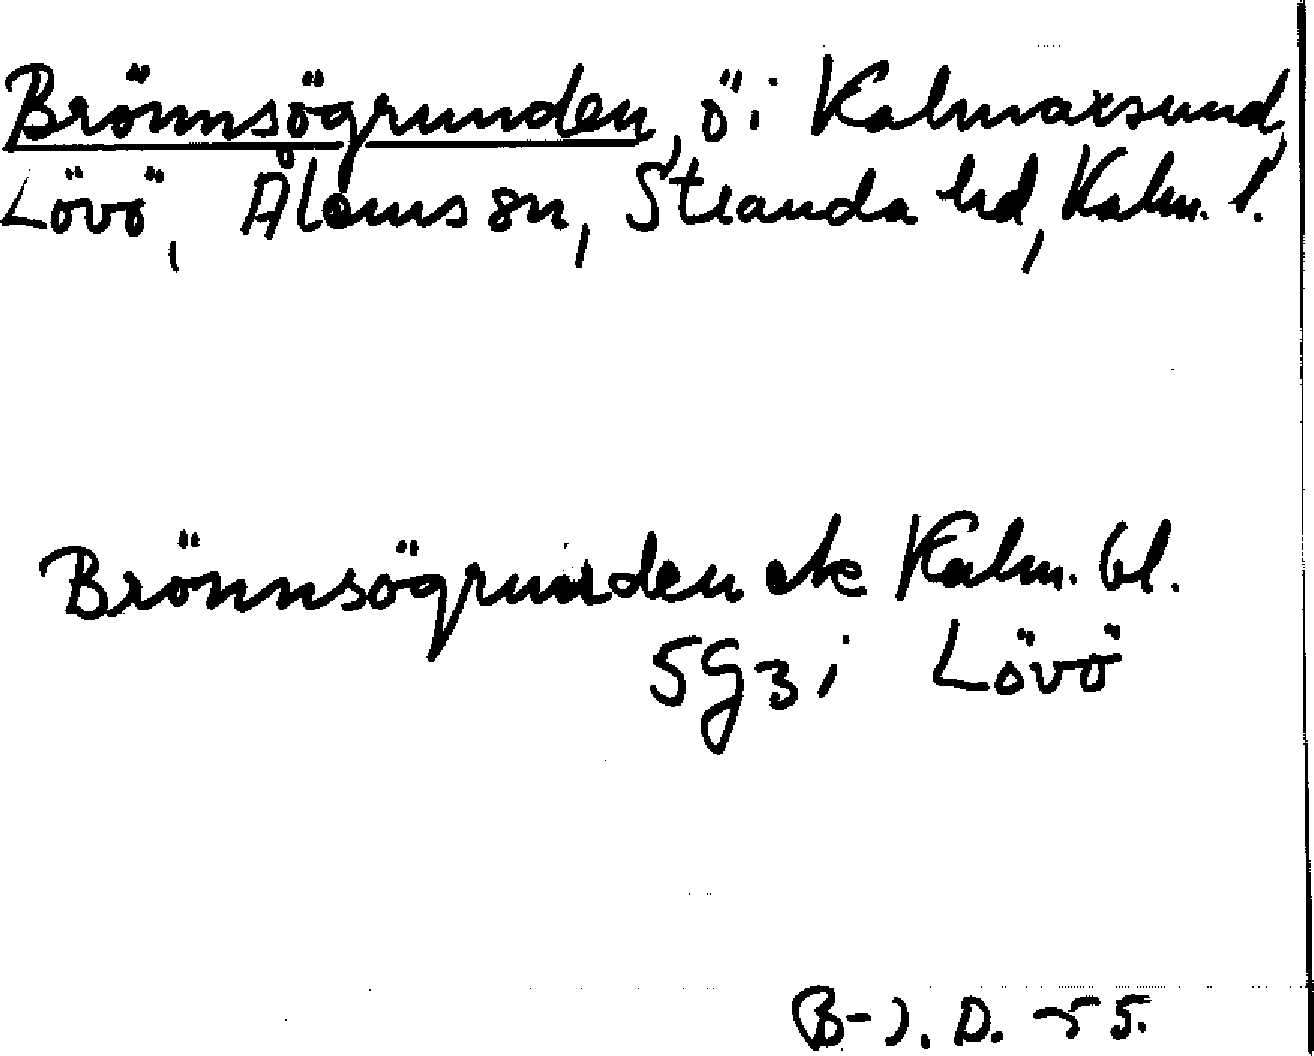 Brönnsögrunden, ö i Kalmarsund,
Lövö, Ålems sn, Stranda hd, Kalm. l.
Brönnsögrunden ek Kalm. bl.
5g3i Lövö
B-J. D. -55.